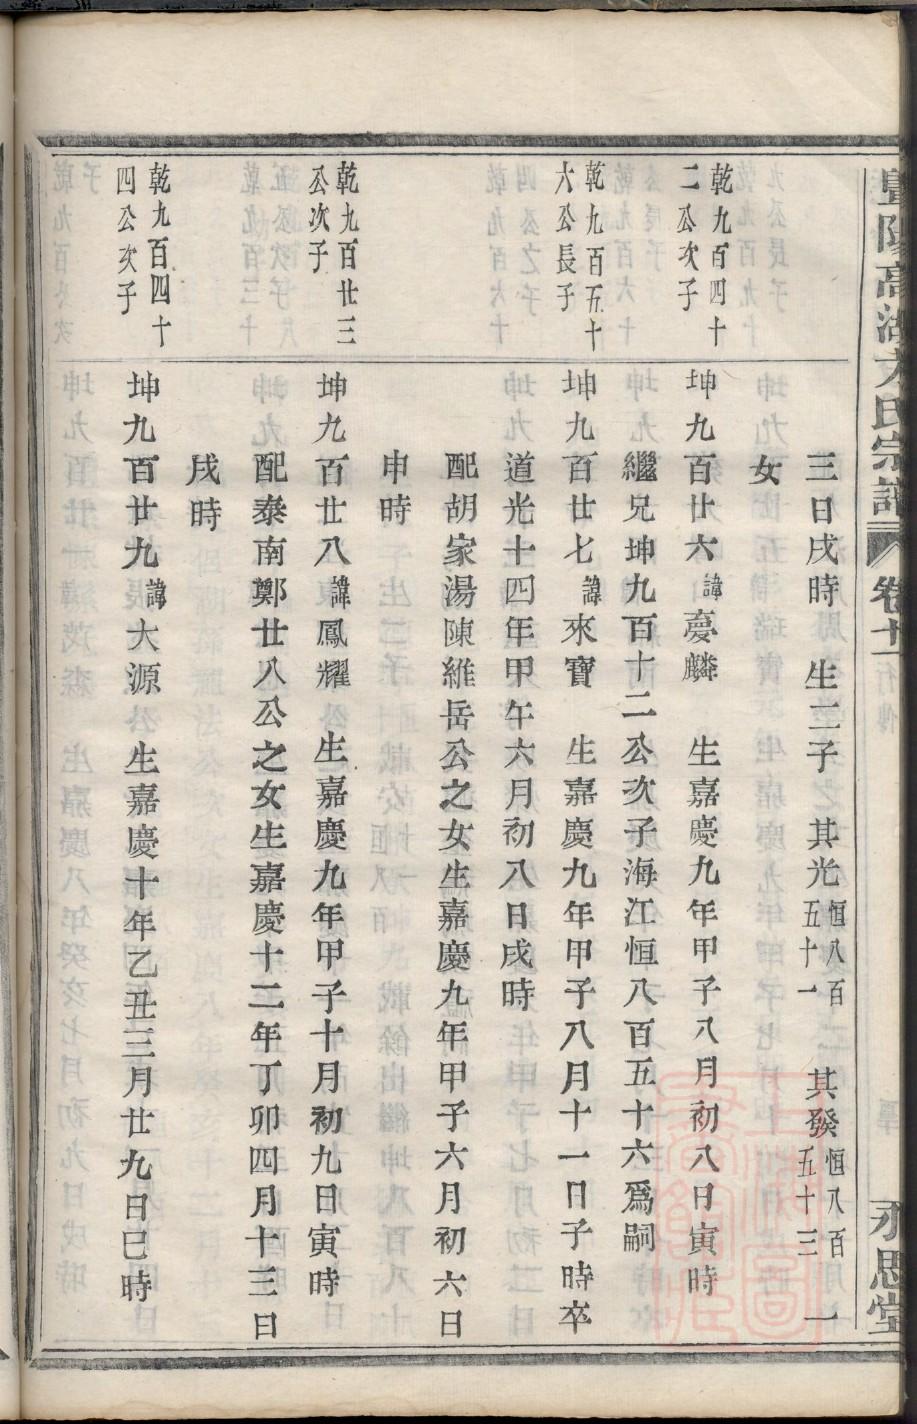 暨陽高湖方氏宗譜 卷十一 行傳 永思堂
三日戌時 生二子 其光恒八百五十一 其發恒八百五十三 一
女
乾九百四十二公次子
坤九百廿六諱慶麟 生嘉慶九年甲子八月初八日寅時
繼兄坤九百十二公次子海江恒八百五十六爲嗣
乾九百五十六公長子
坤九百廿七諱來寶 生嘉慶九年甲子八月十一日子時卒
道光十四年甲午六月初八日戌時
配胡家湯陳維岳公之女生嘉慶九年甲子六月初六日
申時
乾九百廿三公次子
坤九百廿八諱鳳耀 生嘉慶九年甲子十月初九日寅時
配泰南鄭廿八公之女生嘉慶十二年丁卯四月十三日
戌時
乾九百四十四公次子
坤九百廿九諱大源 生嘉慶十年乙丑三月廿九日巳時